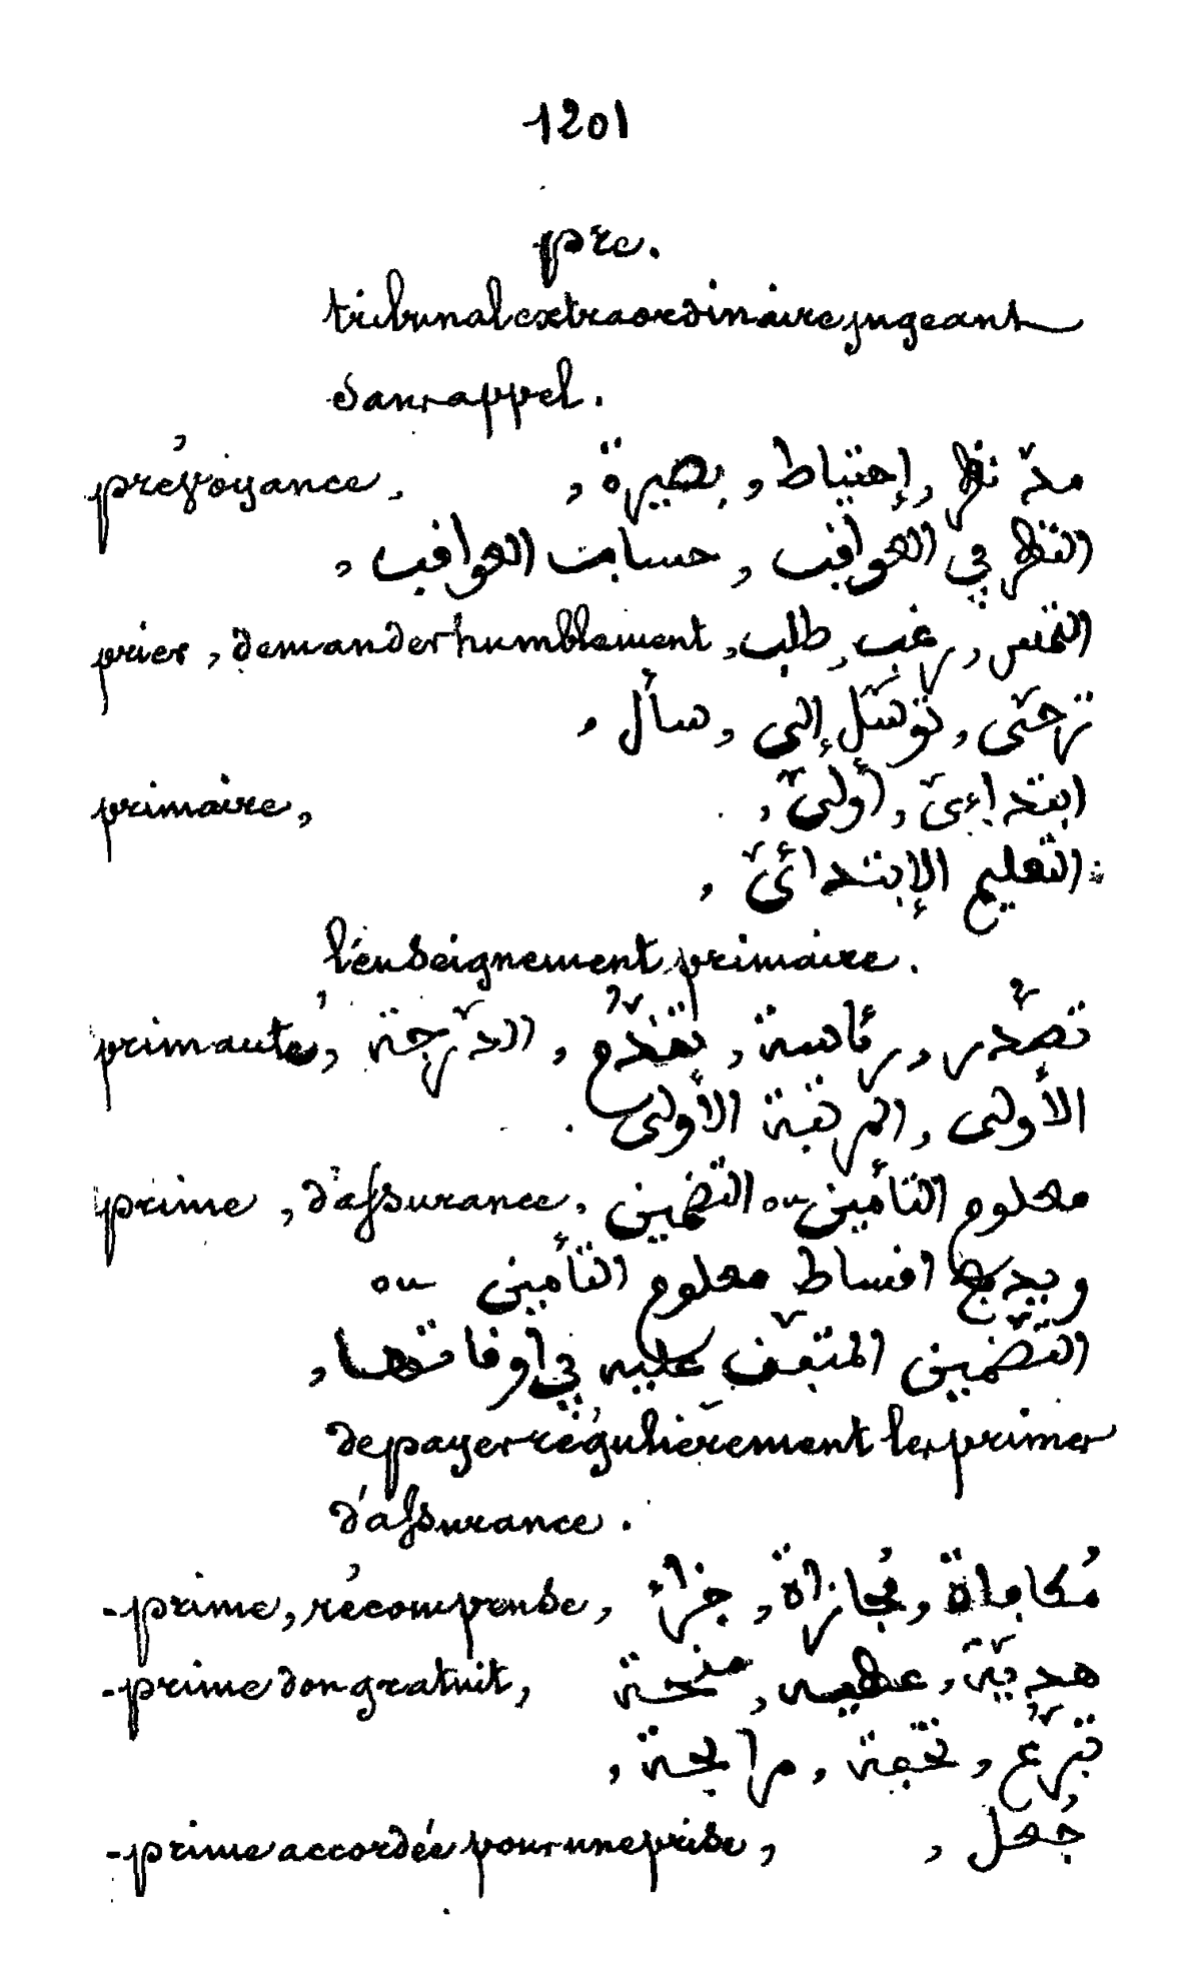 1201
pre.
tribunal extraordinaire jugeant
sans appel.
prévoyance, مدّ نظر, إحتياط, بصيرة,
النظر في العواقب, حساب العواقب,
prier, demander humblement, التمس, رغب, طلب,
ترجّى, توسّل إلى, سأل,
primaire, ابتداءيّ, أوليّ,
التعليم الإبتدائيّ,
l'enseignement primaire.
primauté, تصدّر, رئاسة, تقدّم, الدّرجة
الأولى, المرتبة الأولى.
prime, d'assurance. معلوم التأمين ou التضمين
ويدفع اقساط معلوم التأمين ou
التّضمين المتّفق عليه في أوقاتها,
de payer régulièrement les primes
d'assurance.
- prime, récompense, مُكافاة, مُجازاة, جزاء
- prime don gratuit, هديّة, عطيه, منحة
تبرّع, تحفة, مرابحة,
- prime accordée pour une prise, جُعل,